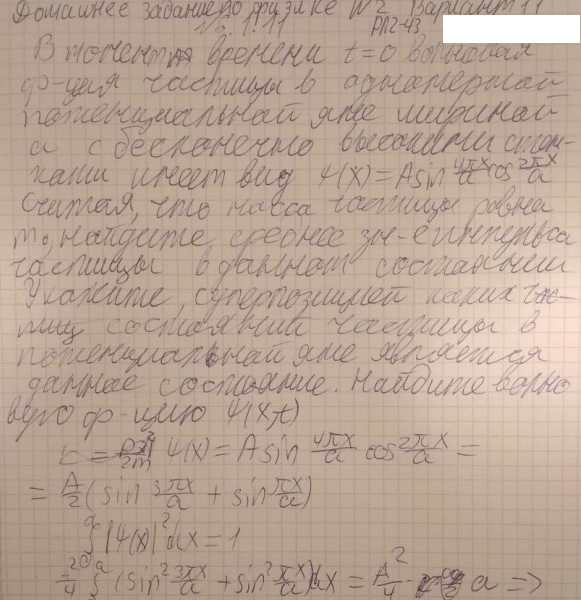 Домашнее задание по физике №2 Вариант 11
РЛ2-43
В момент времени t=0 волновая
ф-ция частицы в одномерной
потенциальной яме шириной
a с бесконечно высокими стен-
ками имеет вид ψ(x) = A sin 4πx/a cos 2πx/a
Считая, что масса частицы равна
m₀, найдите среднее зн-е импульса
частицы в данном состоянии
Укажите, суперпозицией каких
состояний частицы в
потенциальной яме является
данное состояние. Найдите волно
вую ф-цию Ψ(x,t)
ψ(x) = A sin 4πx/a cos 2πx/a =
= A/2 (sin 3πx/a + sin πx/a)
∫|ψ(x)|²dx = 1
(sin² 3πx/a + sin² πx/a)dx = A²/4 a =>